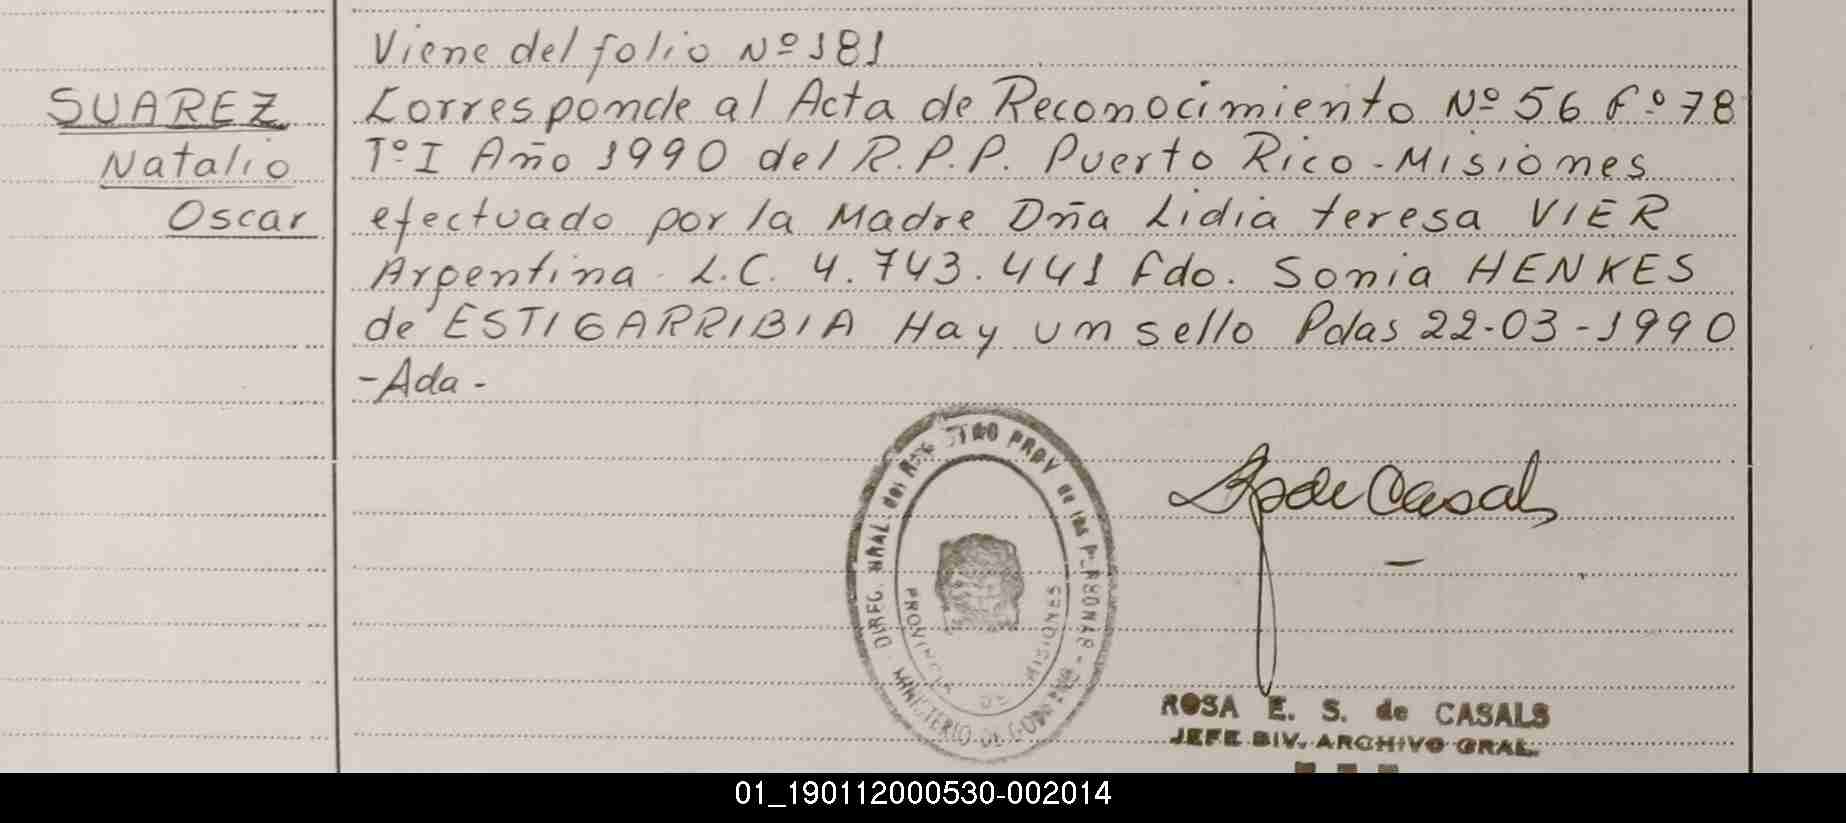 Viene del folio Nº 181
SUAREZ
Natalio
Oscar
Corresponde al Acta de Reconocimiento Nº 56 Fº 78
Tº I Año 1990 del R.P.P. Puerto Rico - Misiones
efectuado por la Madre Dña Lidia teresa VIER
Argentina. L.C. 4.743.441 Fdo. Sonia HENKES
de ESTIGARRIBIA Hay un sello Pdas 22-03-1990
-Ada-
DIREC. GRAL del REGISTRO PROV de las PERSONAS
PROVINCIA DE MISIONES
MINISTERIO DE GOBIERNO
de Casals
ROSA E. S. de CASALS
JEFE DIV. ARCHIVO GRAL.
01_190112000530-002014